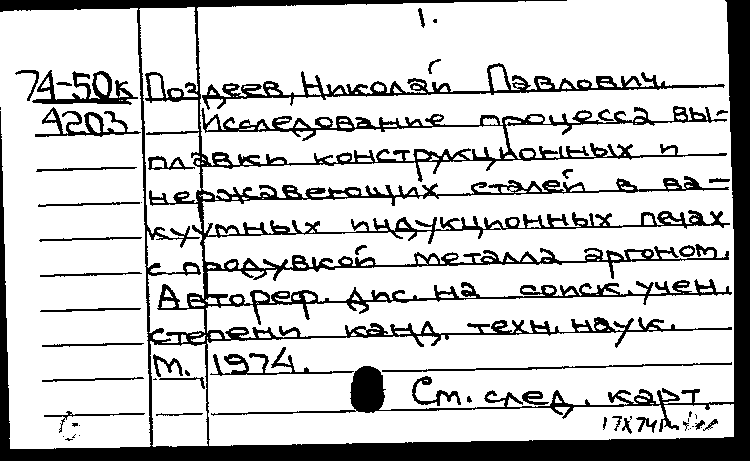 1.
74-50к Поздеев, Николай Павлович.
4203 Исследование процесса вы-
плавки конструкционных и
нержавеющих сталей в ва-
куумных индукционных печах
с продувкой металла аргоном.
Автореф. дис. на соиск. учен.
степени канд. техн. наук.
М., 1974.
См. след. карт.
17X74